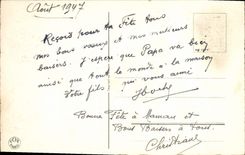 Août 1947
Reçois pour ta Fête tous
mes bons vœux et mes meilleurs
baisers. J'espère que Papa va bien
ainsi que tout le monde à la maison
Votre fils qui vous aime
Bonne Fête à Maman et
Bons Baisers à tous.
Christiane